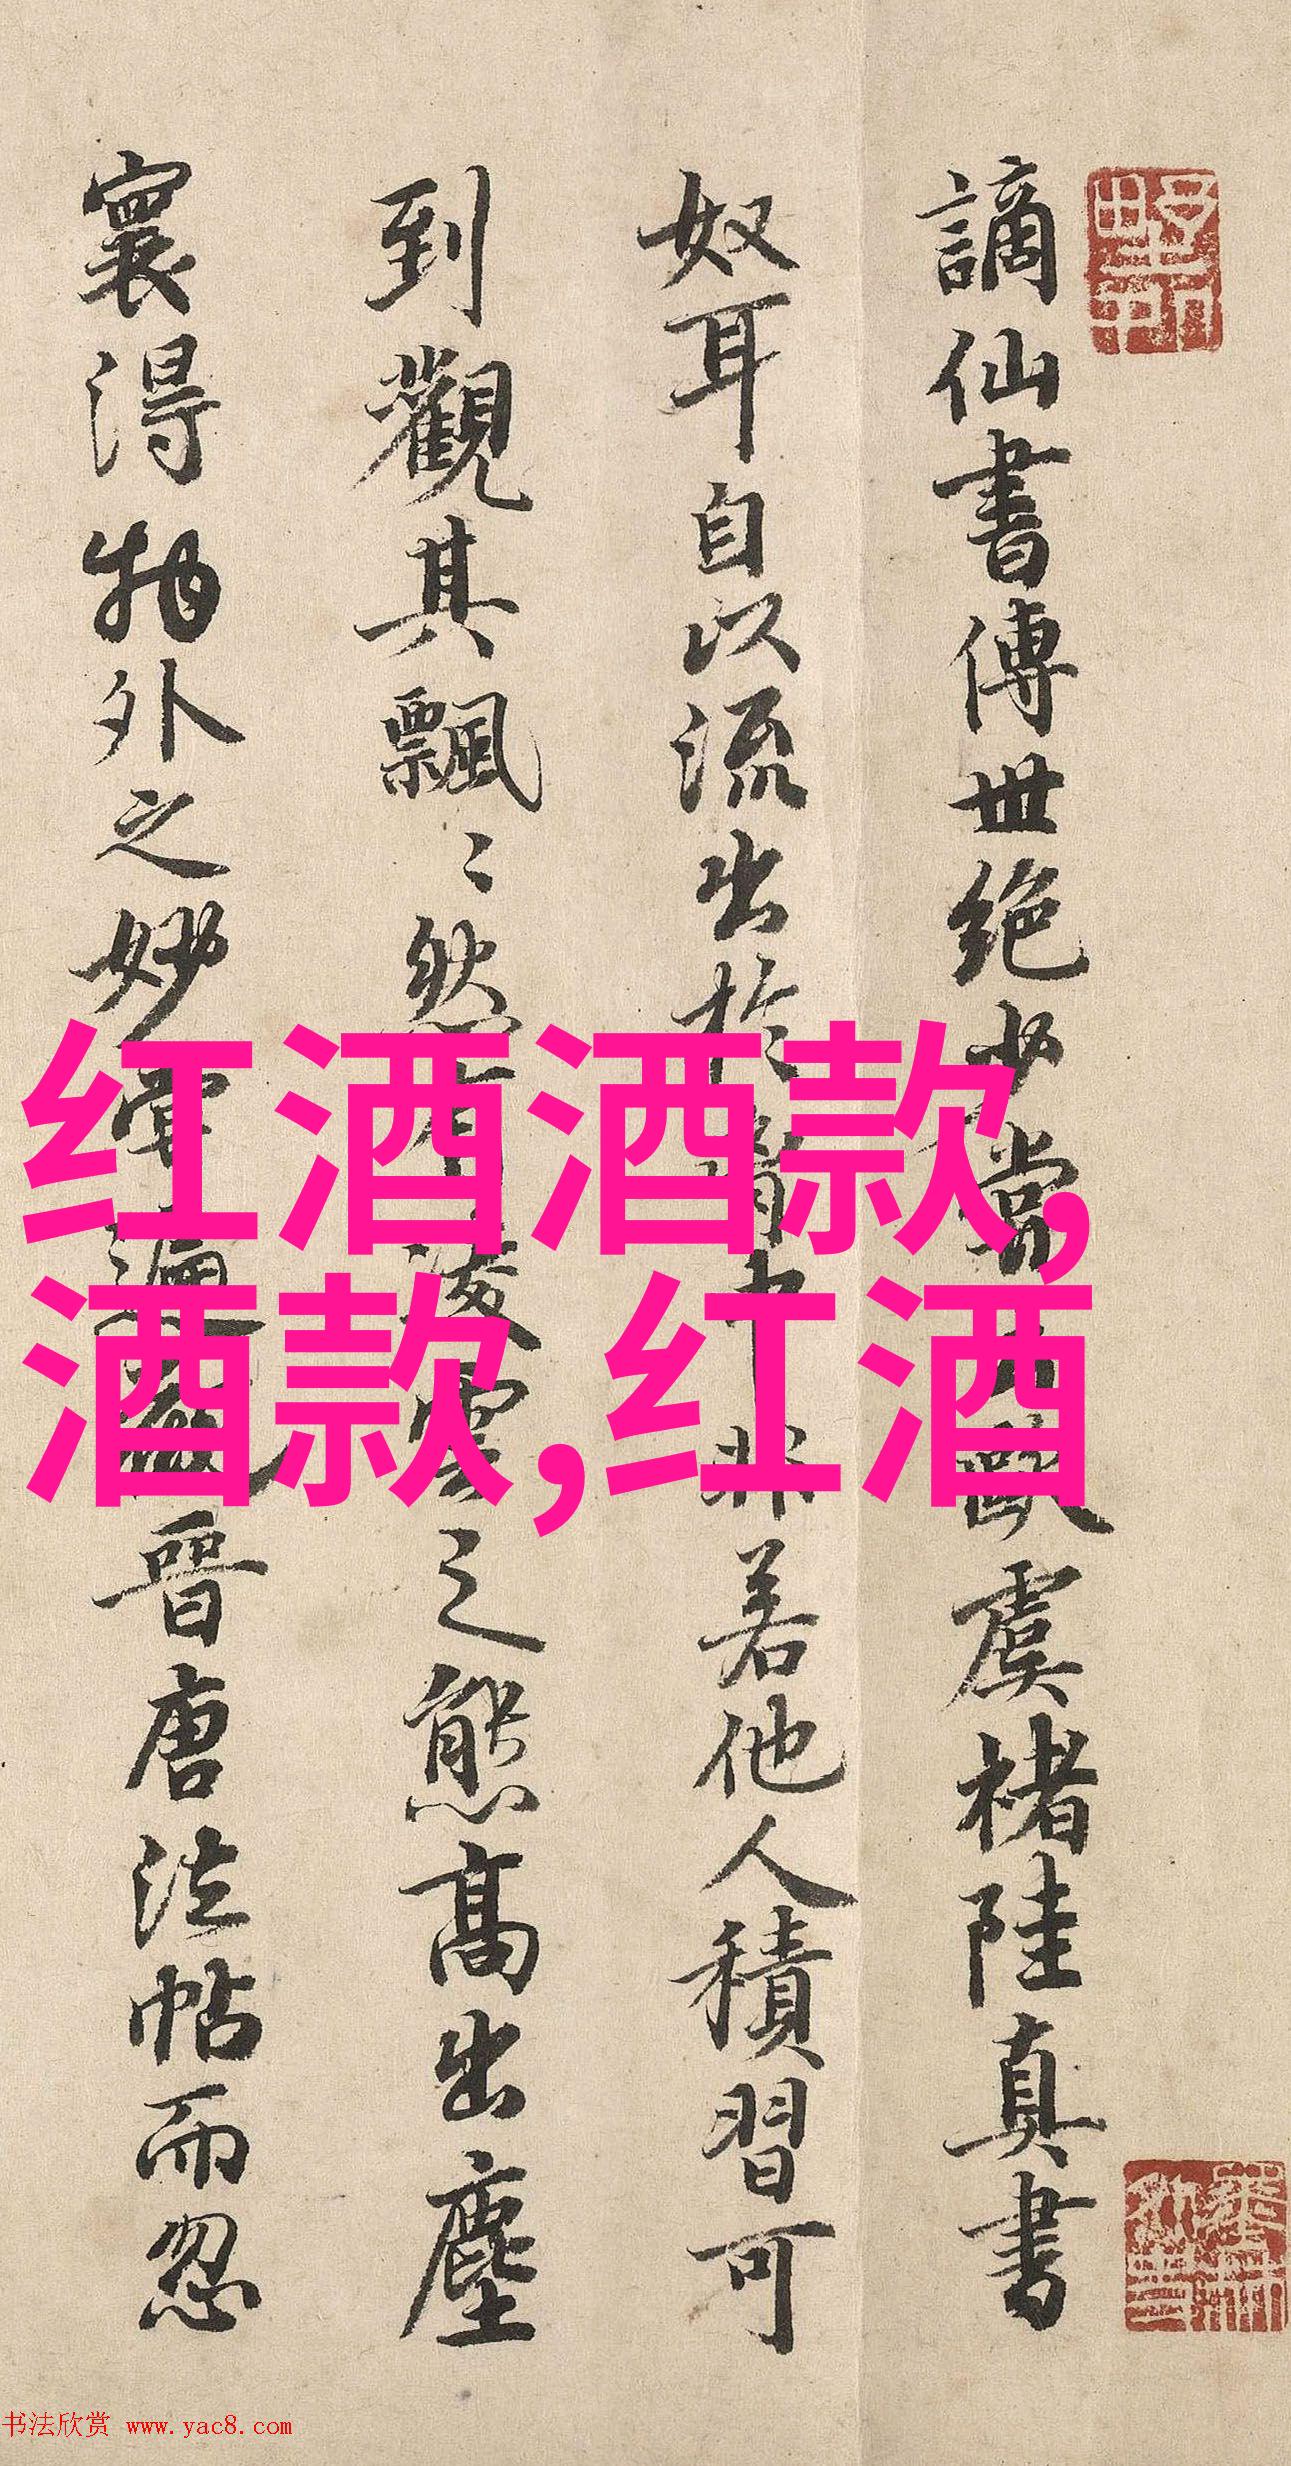 謫仙書傳世絶少嘗歐虞褚陸真書
奴耳自以流出於胷中非若他人積習可
到觀其飄〻然有凌雲之態高出塵
寰得物外之妙嘗遍晉唐法帖而忽
红酒酒款,
酒款,红酒
书法欣赏 www.yac8.com